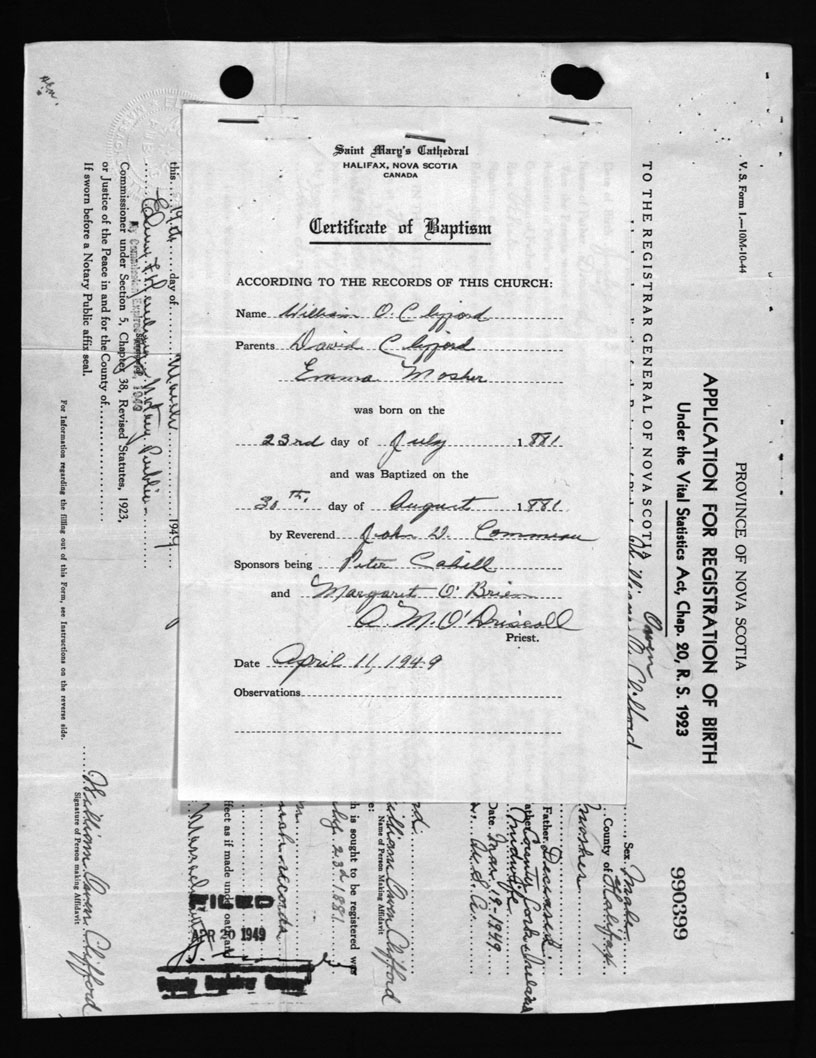 Saint Mary's Cathedral
HALIFAX, NOVA SCOTIA
CANADA
Certificate of Baptism
ACCORDING TO THE RECORDS OF THIS CHURCH:
Name William O. Clifford
Parents David Clifford
Emma Mosher
was born on the
23rd day of July 1881
and was Baptized on the
30th. day of August 1881
by Reverend John D. Commeau
Sponsors being Peter Cahill
and Margaret O'Brien
A. M. O'Driscoll
Priest.
Date April 11, 1949
Observations
V. S. Form 1.—10M-10-44
PROVINCE OF NOVA SCOTIA
APPLICATION FOR REGISTRATION OF BIRTH
Under the Vital Statistics Act, Chap. 20, R. S. 1923
990399
TO THE REGISTRAR GENERAL OF NOVA SCOTIA
Owen
Clifford
Sex Male
County of Halifax
Mosher
Father Deceased.
County Cork Ireland
Midwife
Date Mar. 19-1949
U. S. A.
William Owen Clifford
Name of Person Making Affidavit
h is sought to be registered was
July 23d 1881
records
ffect as if made under oath
FILED
APR 20 1949
Deputy Registrar General
this 19th day of March 1949
Notary Public
My Commission Expires 1949
Commissioner under Section 5, Chapter 38, Revised Statutes, 1923,
or Justice of the Peace in and for the County of
If sworn before a Notary Public affix seal.
William Owen Clifford
Signature of Person making Affidavit
For Information regarding the filling out of this Form, see Instructions on the reverse side.